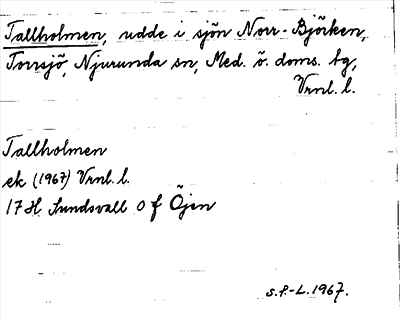 Tallholmen, udde i sjön Norr-Björken,
Torrsjö, Njurunda sn, Med. ö. doms. bg,
Vrnl. l.
Tallholmen
ek (1967) Vrnl. l.
17H Sundsvall 0 f Öjen
S.F.-L. 1967.